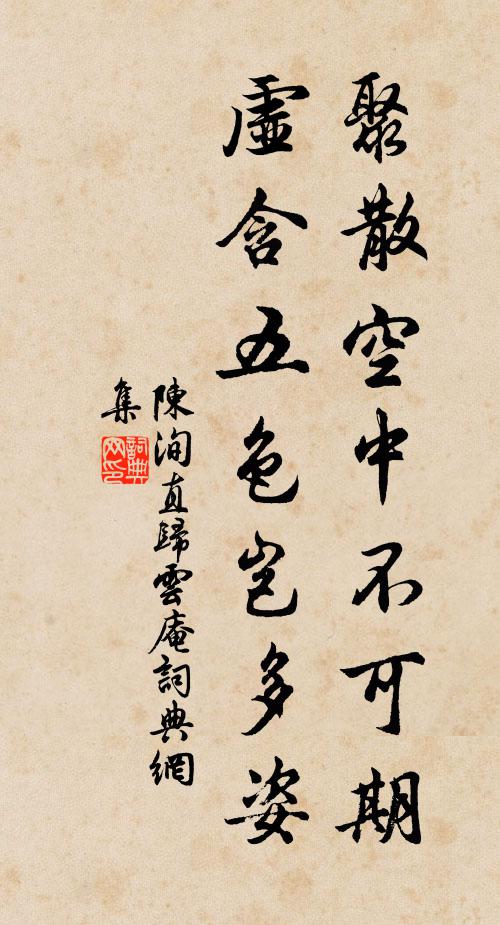 聚散空中不可期
虛含五色豈多姿
陳洵直歸雲庵詞典網
集
詞典
网印